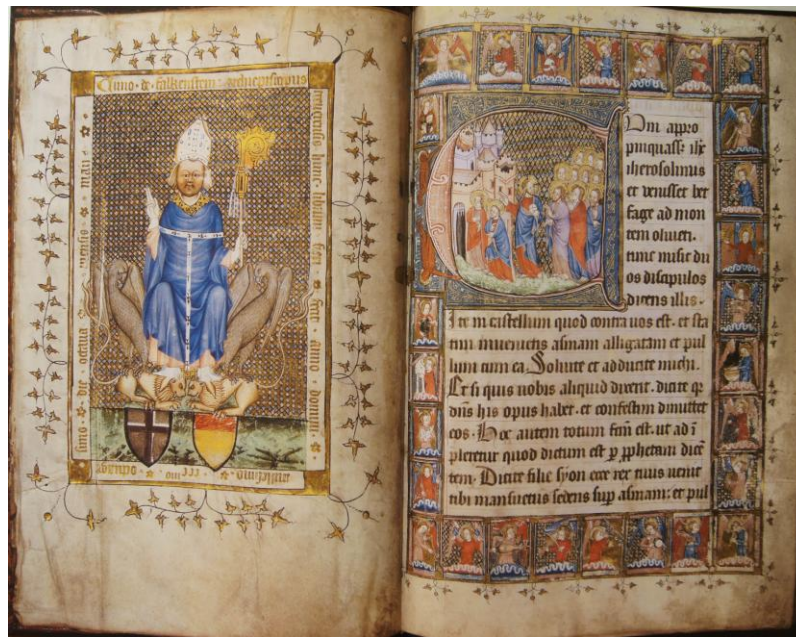 Cuno de falkenstein archiepiscopus
hunc librum fieri anno domini
millesimo CCC
simo die octaua mensis maii
Cum appro
pinquasset ihc
iherosolimis
et uenisset bet
fage ad mon
tem oliueti.
tunc misit du
os discipulos
dicens illis.
Ite in castellum quod contra uos est. et sta
tim inuenietis asinam alligatam et pul
lum cum ea. Soluite et adducite michi.
Et si quis uobis aliquid dixerit. dicite qr
dns his opus habet. et confestim dimittet
eos. Hoc autem totum fcm est. ut adi
pleretur quod dictum est p pphetam dice
tem. Dicite filie syon ecce rex tuus uenit
tibi mansuetus sedens sup asinam: et pul